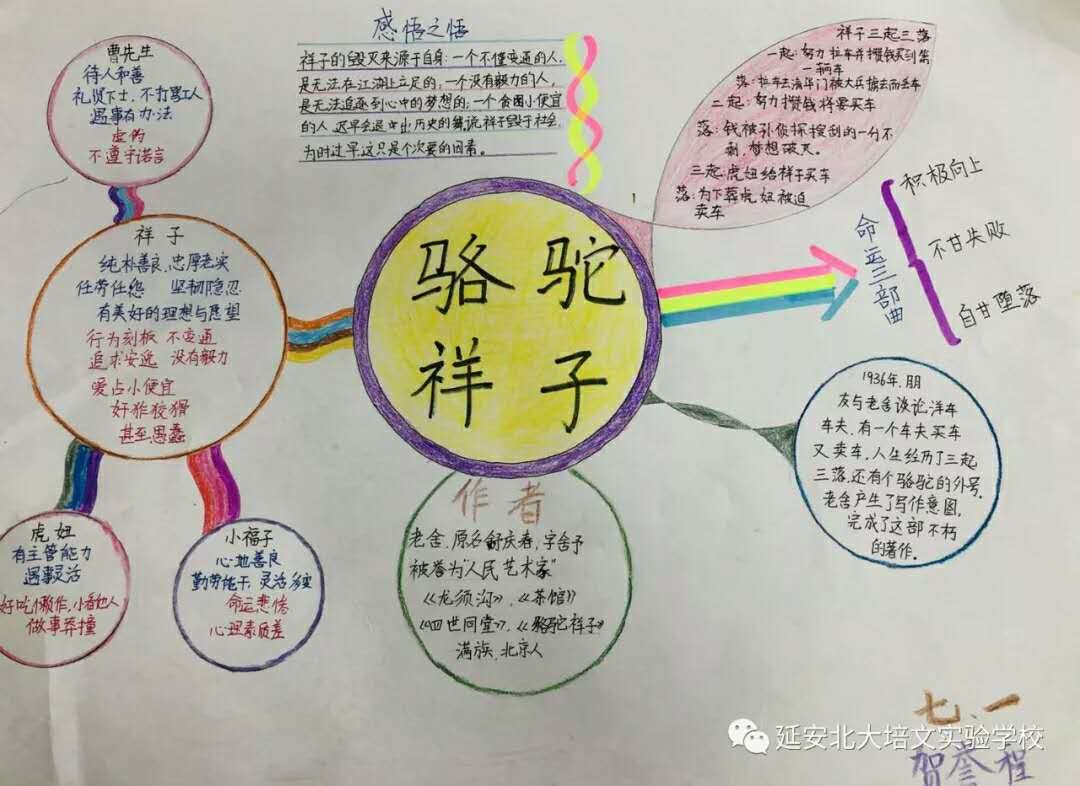 感悟之悟
祥子的毁灭来源于自身:一个不懂变通的人,
是无法在江湖上立足的,一个没有毅力的人,
是无法追逐到心中的梦想的;一个贪图小便宜
的人,迟早会退出历史的舞
祥子毁于社会,
为时过早,这只是个次要的因素。
祥子三起三落
一起:努力拉车并攒钱买到第
一辆车
落:拉车去清华门被大兵掳去而丢车
二起:努力攒钱将要买车
落:钱被孙侦探搜刮的一分不
剩,梦想破灭。
三起:虎妞给祥子买车
落:为下葬虎妞被迫
卖车
曹先生
待人和善
礼贤下士,不打骂工人
遇事有办法
虚伪
不遵守诺言
祥子
纯朴善良,忠厚老实
任劳任怨 坚韧隐忍
有美好的理想与愿望
行为刻板 不变通
追求安逸 没有毅力
爱占小便宜
奸诈狡猾
甚至愚蠢
骆驼
祥子
命运三部曲
积极向上
不甘失败
自甘堕落
1936年,朋
友与老舍谈论洋车
车夫,有一个车夫买车
又卖车,人生经历了三起
三落,还有个骆驼的外号,
老舍产生了写作意图,
完成了这部不朽
的著作。
虎妞
有主管能力
遇事灵活
好吃懒作,小看他人
做事莽撞
小福子
心地善良
勤劳能干,灵活多变
命运悲惨
心理素质差
作者
老舍,原名舒庆春,字舍予
被誉为“人民艺术家”
《龙须沟》,《茶馆》
《四世同堂》,《骆驼祥子》
满族,北京人
七、一
延安北大培文实验学校
贺誉程